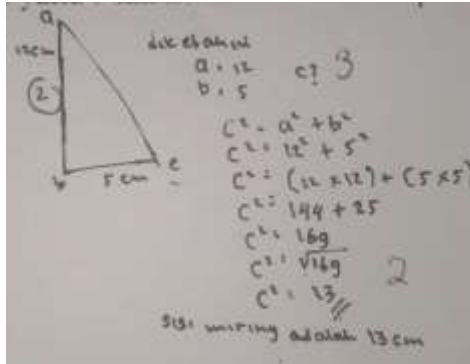 a
12 cm
2
b
5 cm
c
diketahui
a = 12
b = 5
c? 3
C² = a² + b²
C² = 12² + 5²
C² = (12 x 12) + (5 x 5)
C² = 144 + 25
C² = 169
C² = √169
2
C² = 13 //
Sisi miring adalah 13 cm